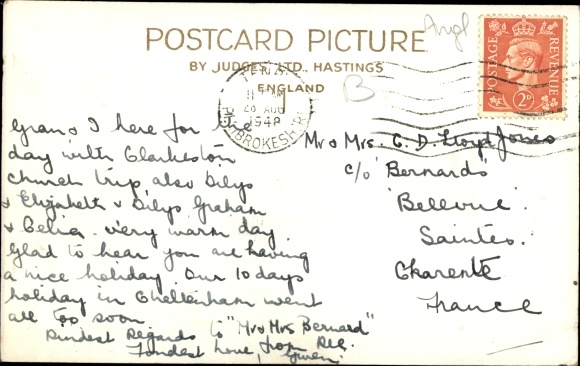 POSTCARD PICTURE
BY JUDGES LTD., HASTINGS
ENGLAND
Angl
B
POSTAGE
REVENUE
2D
AUG
1948
PEMBROKESHIRE
Gran & I here for the
day with Clarkeston
Church trip also Dilys
& Elizabeth & Dilys Graham
& Celia. Very warm day.
Glad to hear you are having
a nice holiday. Our 10 days
holiday in Cheltenham went
all too soon
Kindest Regards to "Mr & Mrs Bernard"
Fondest love, from All.
Gwen.
Mr & Mrs. C. D. Lloyd Jones
c/o 'Bernards'
'Bellevue'.
Saintes.
Charente
France